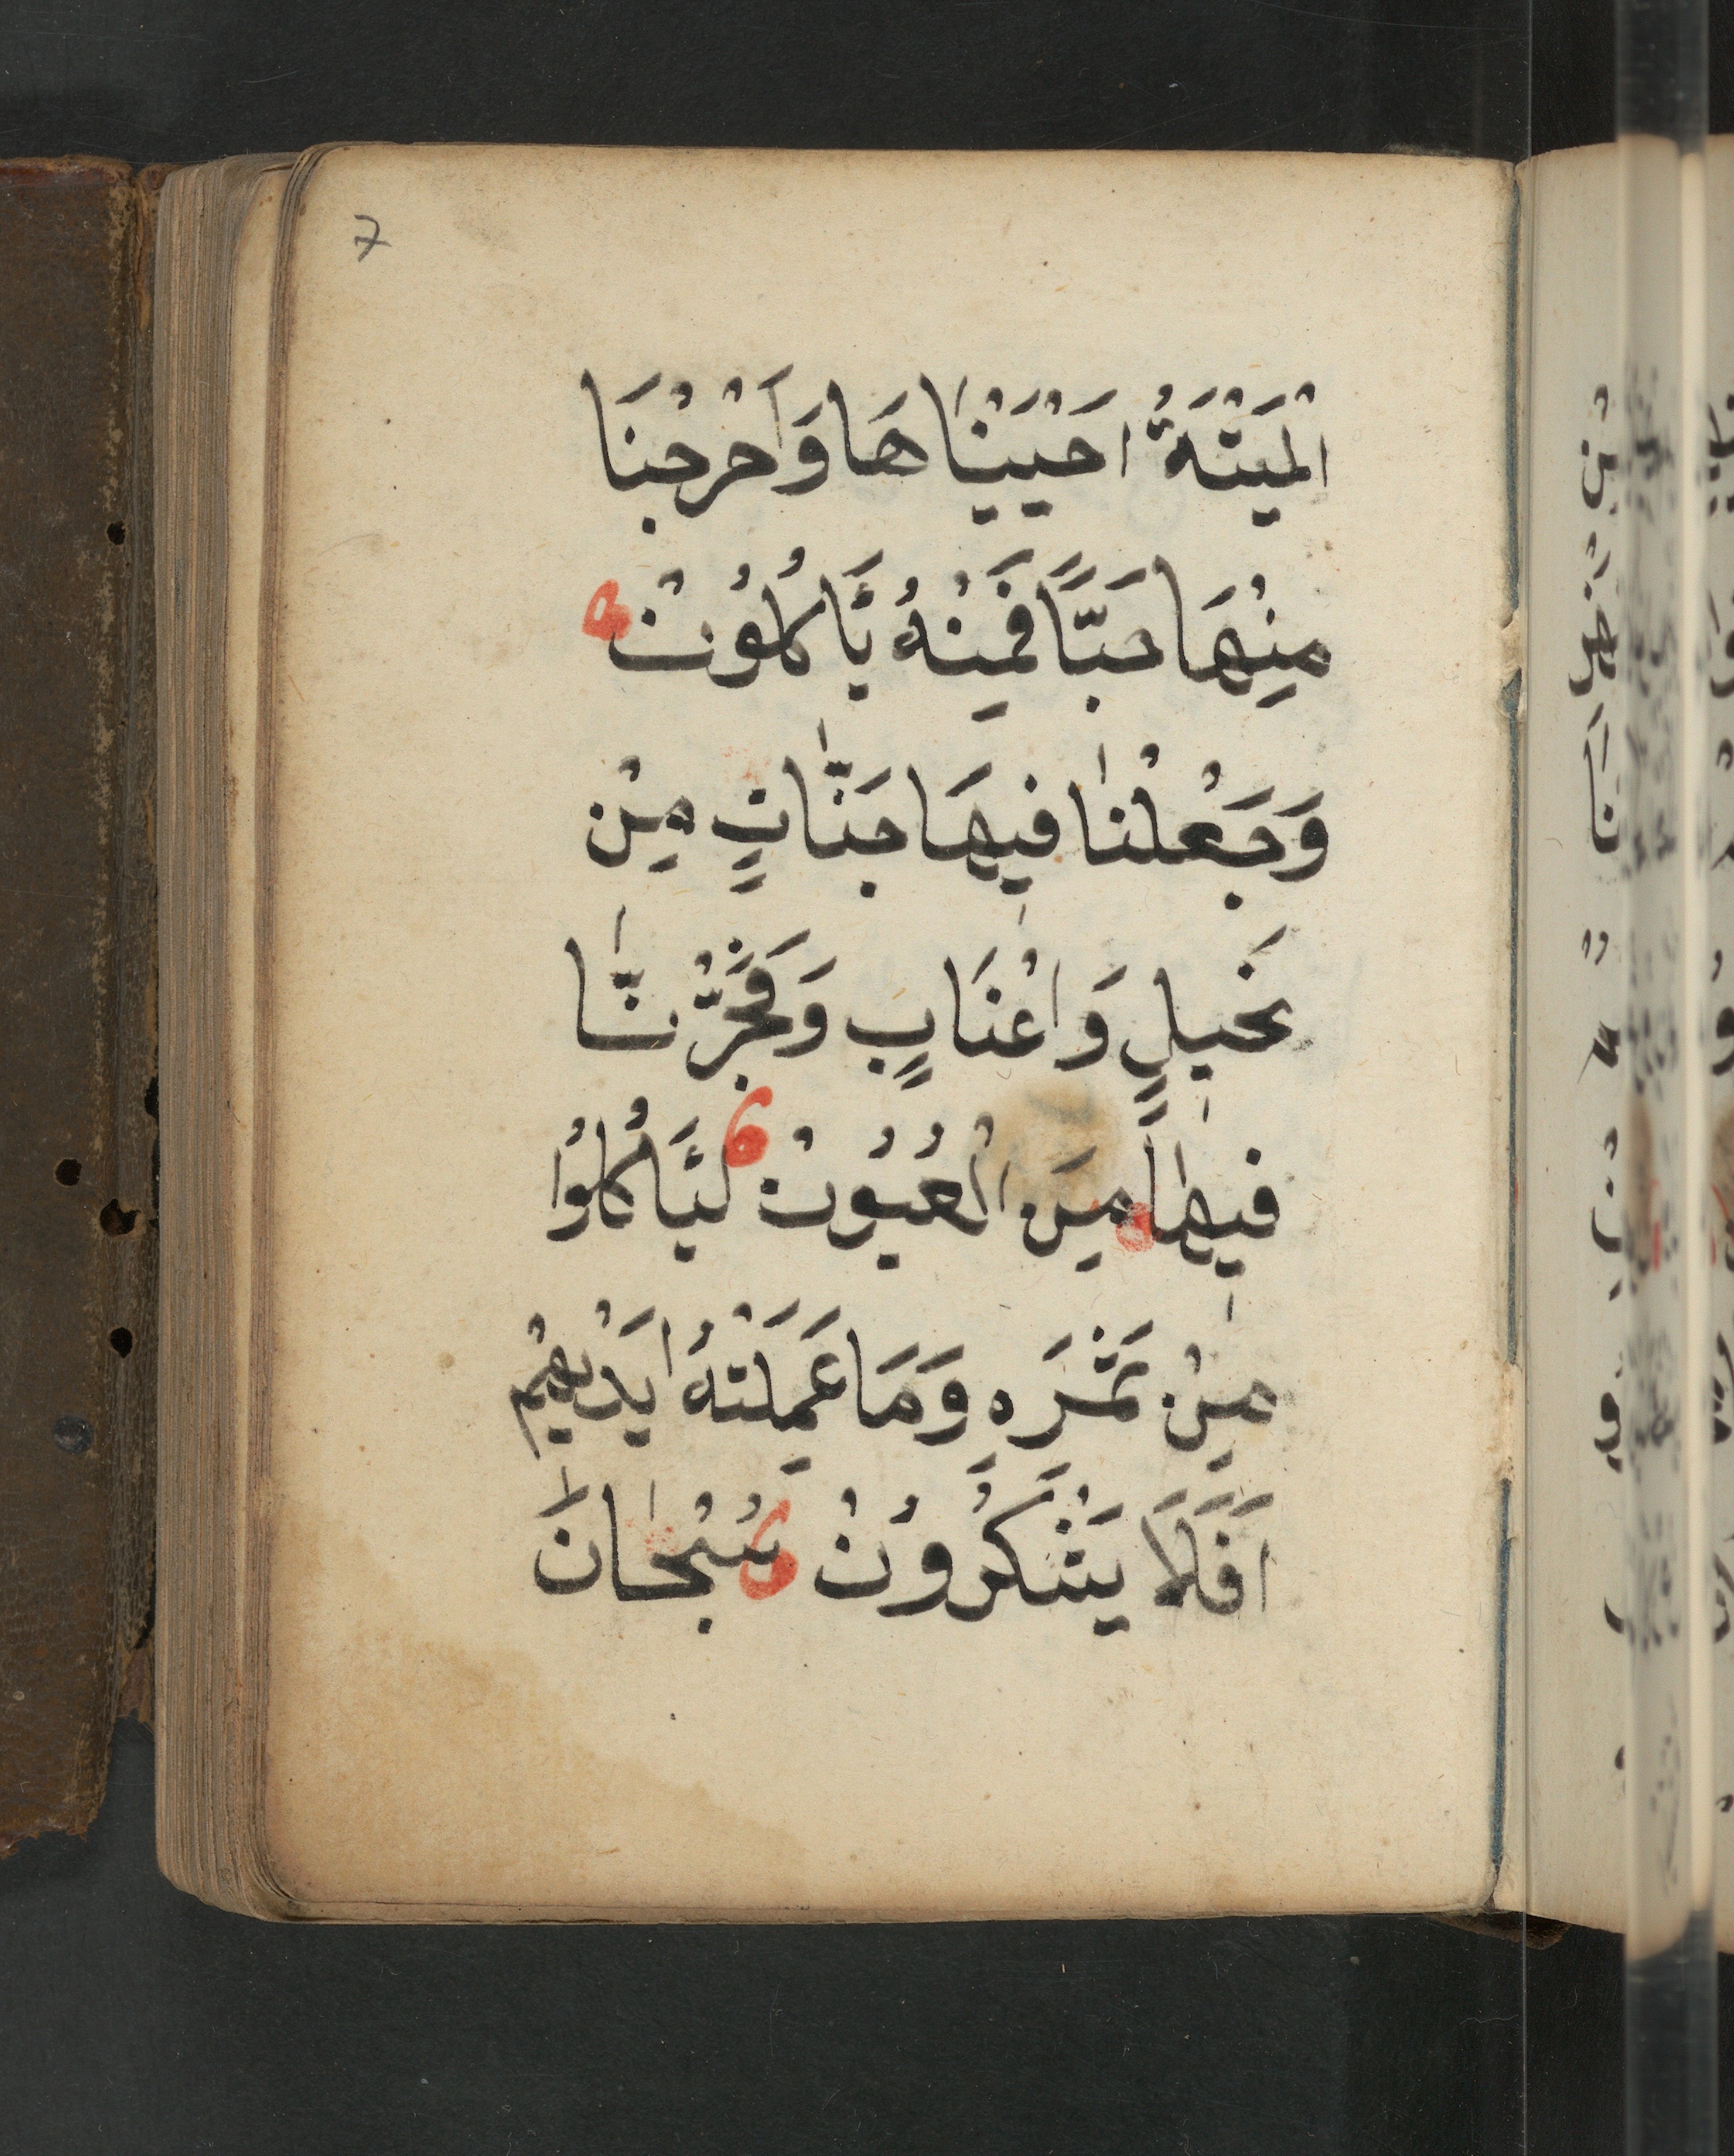 7
الْمَيْتَةُ اَحْيَيْنَاهَا وَاَخْرَجْنَا
مِنْهَا حَبًّا فَمِنْهُ يَاْكُلُوْنْ
وَجَعَلْنَا فِيهَا جَنَّاتٍ مِنْ
نَخِيلٍ وَاَعْنَابٍ وَفَجَّرْنَا
فِيهَا مِنَ الْعُيُوُنْ لِيَاْكُلُوُا
مِنْ ثَمَرِهِ وَمَا عَمِلَتْهُ اَيْدِيهِمْ
اَفَلَا يَشْكُرُوُنْ سُبْحَانَ